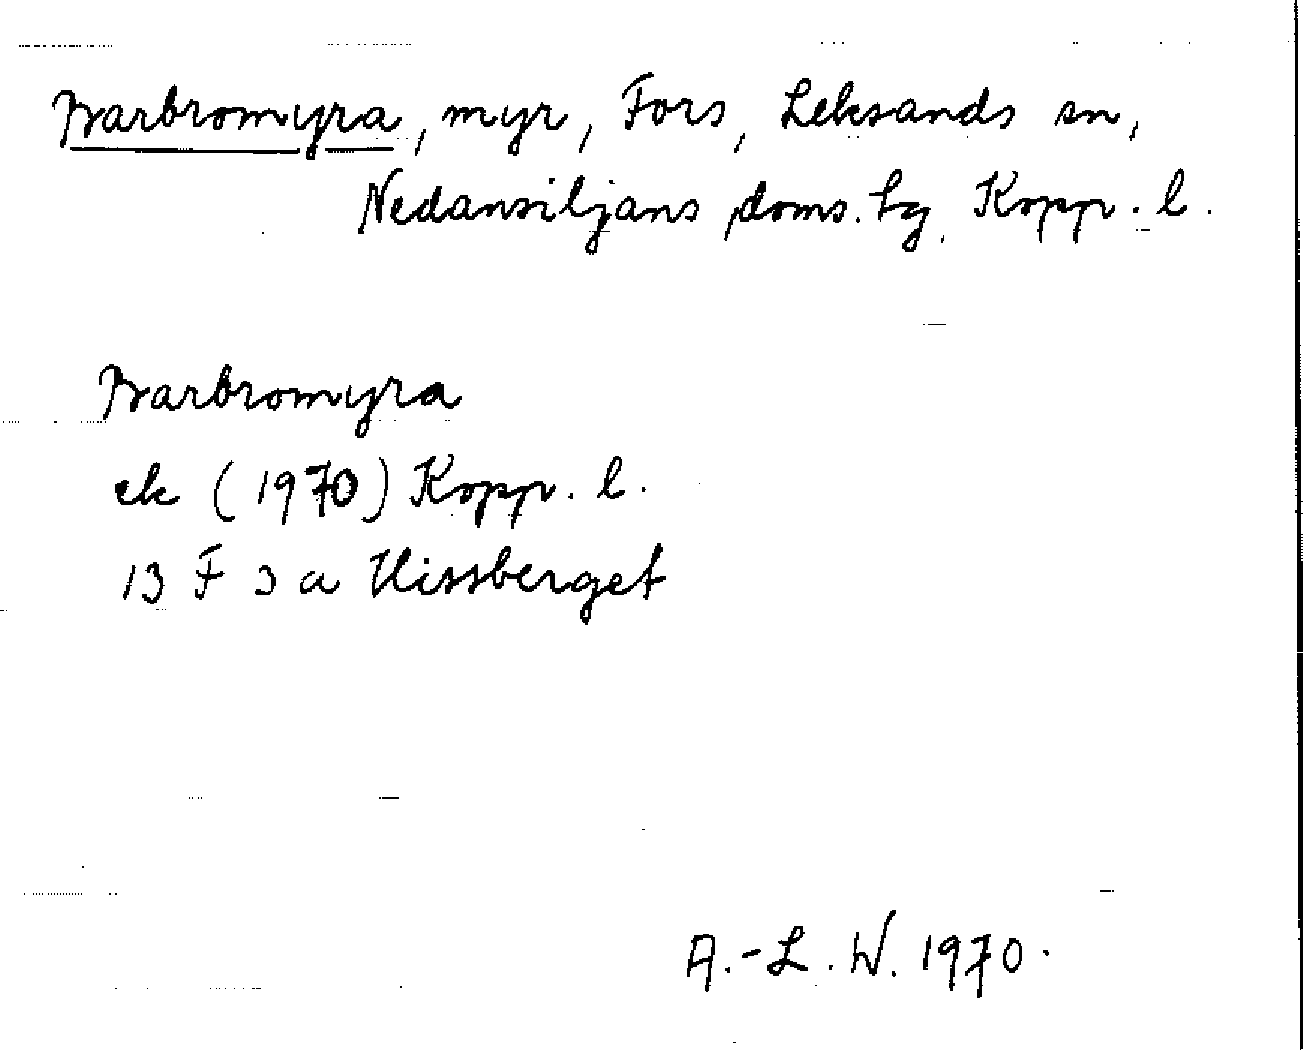 Barbromyra, myr, Fors, Leksands sn,
Nedansiljans doms. hg, Kopp. l.
Barbromyra
ek (1970) Kopp. l.
13 F 3 a Hissberget
A.-L. W. 1970.